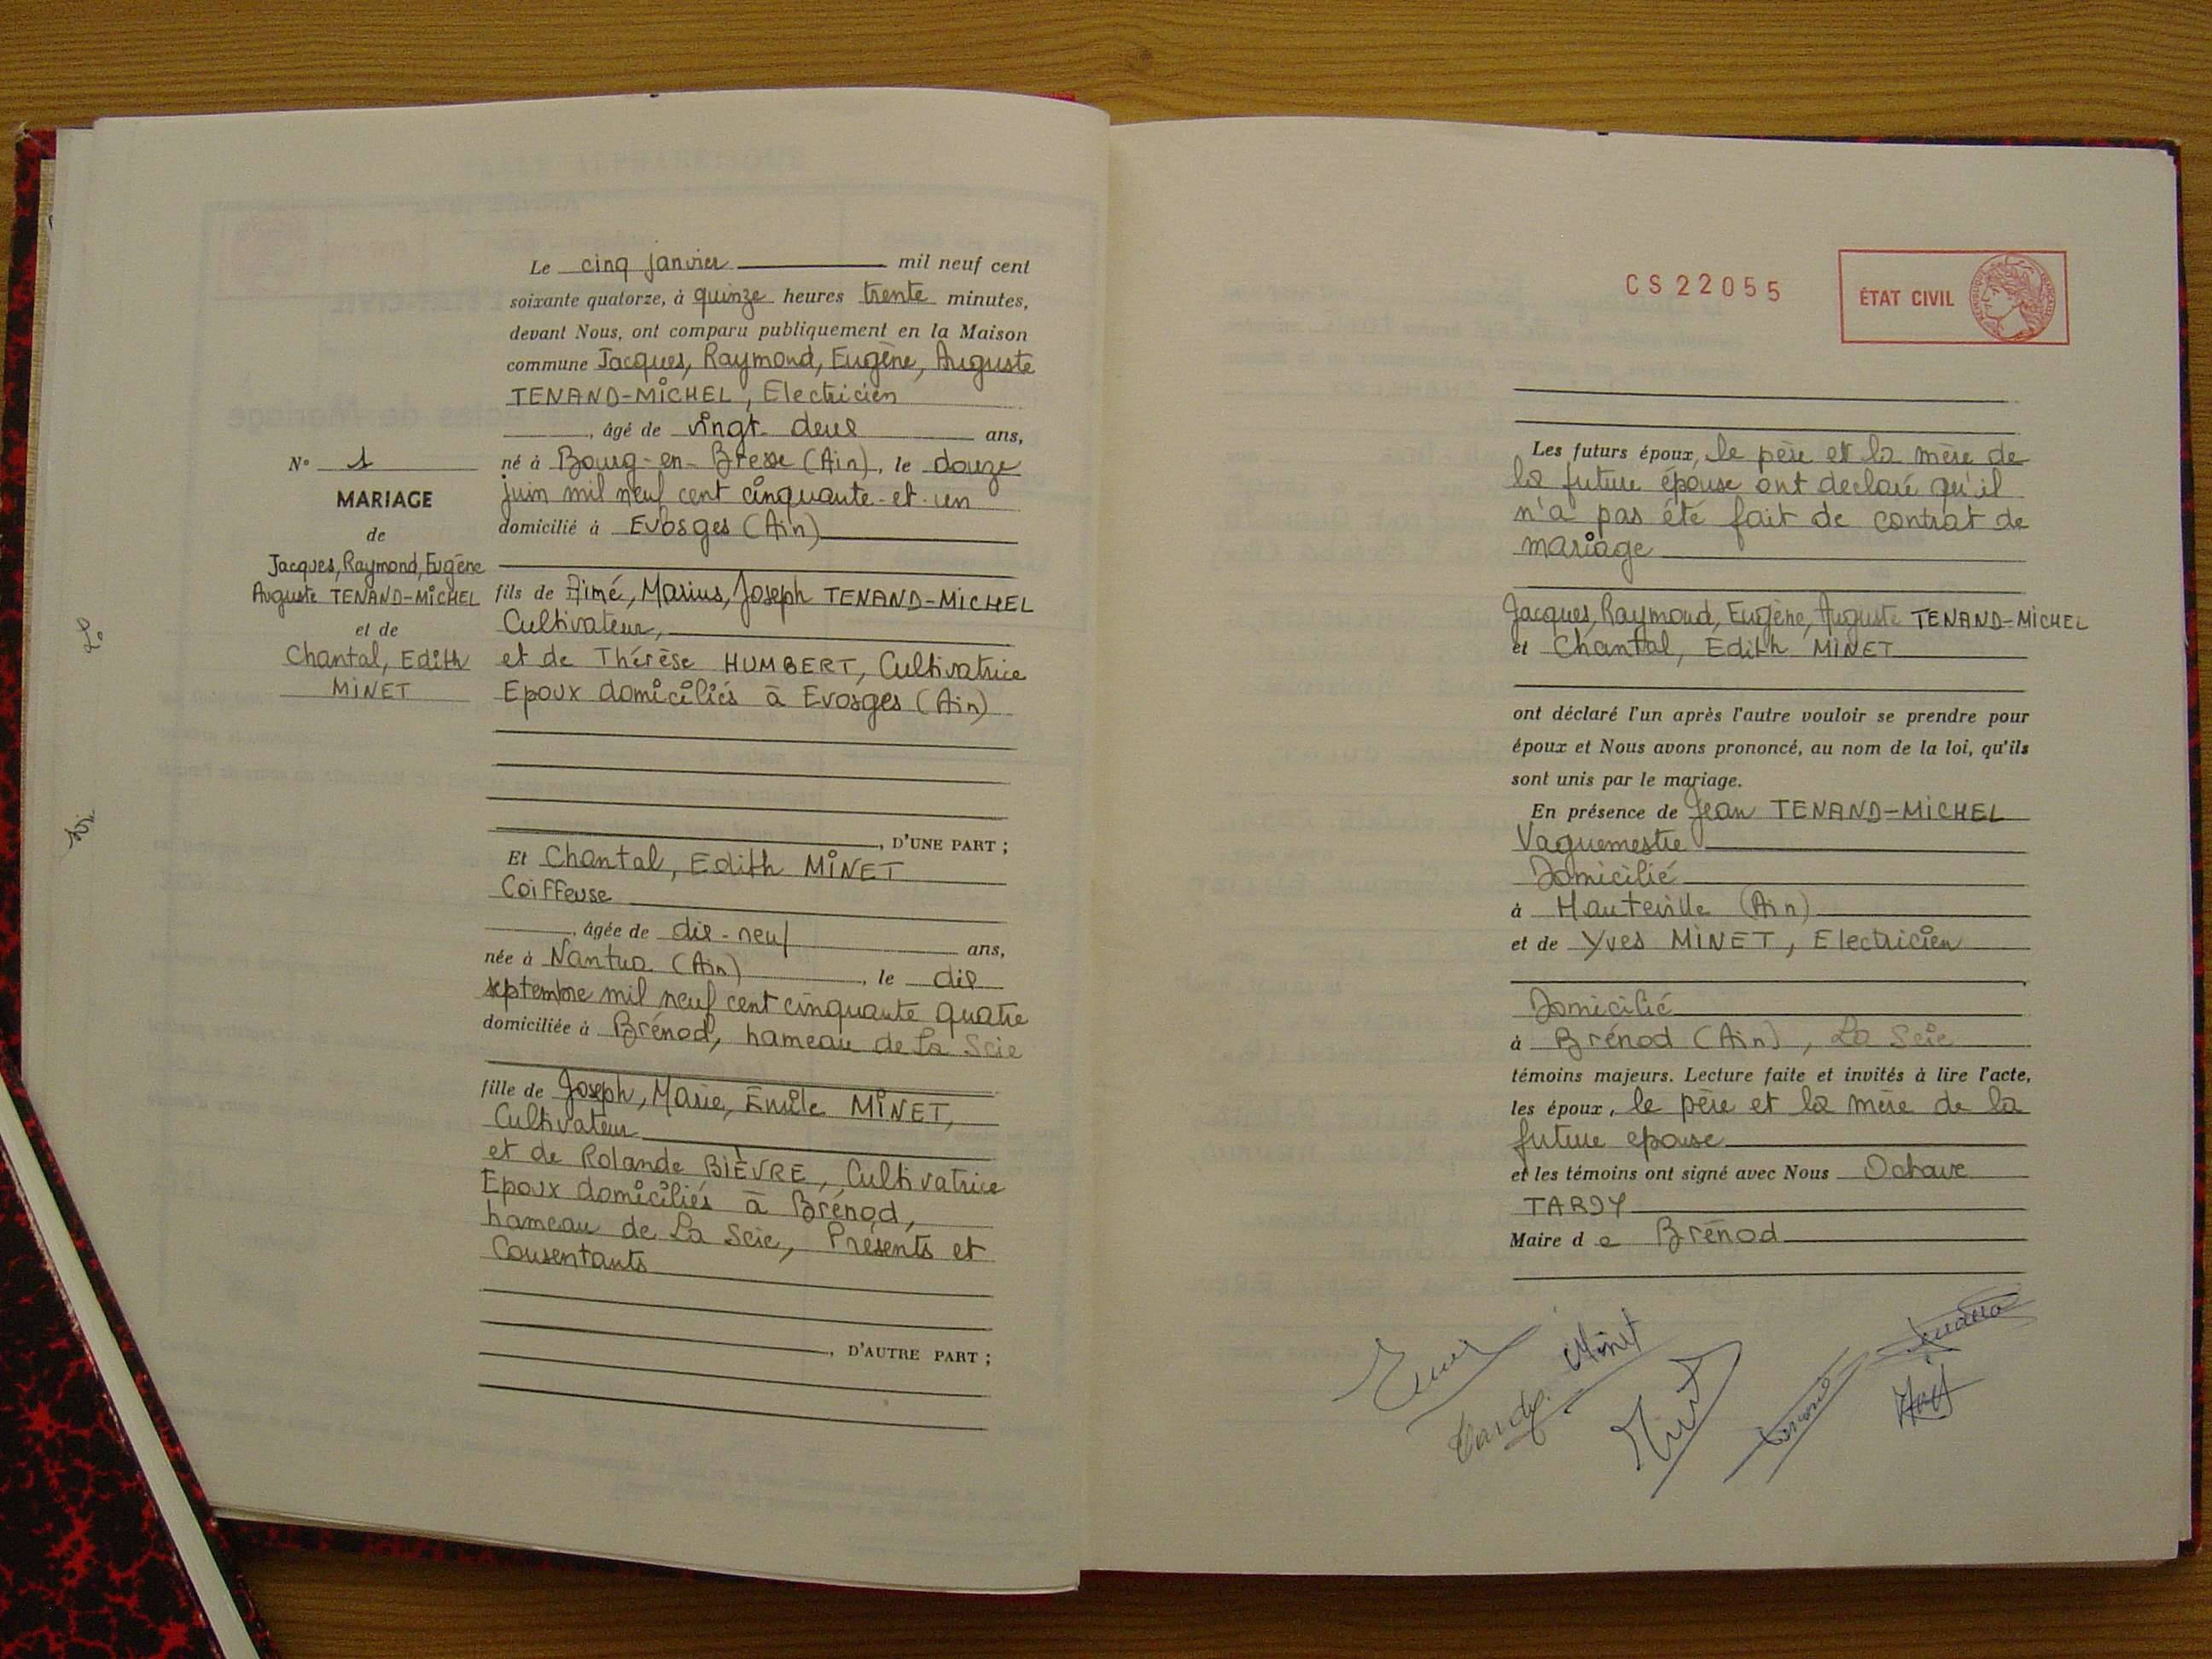 Le cinq janvier mil neuf cent
soixante quatorze, à quinze heures trente minutes,
devant Nous, ont comparu publiquement en la Maison
commune Jacques, Raymond, Eugène, Auguste
TENAND-MICHEL, Electricien
, âgé de vingt-deux ans,
né à Bourg-en-Bresse (Ain), le douze
juin mil neuf cent cinquante-et-un
domicilié à Evosges (Ain)
N° 1
MARIAGE
de
Jacques, Raymond, Eugène
Auguste TENAND-MICHEL
et de
Chantal, Edith
MINET
fils de Aimé, Marius, Joseph TENAND-MICHEL
Cultivateur,
et de Thérèse HUMBERT, Cultivatrice
Epoux domiciliés à Evosges (Ain)
, D'UNE PART ;
Et Chantal, Edith MINET
Coiffeuse
, âgée de dix-neuf ans,
née à Nantua (Ain), le dix
septembre mil neuf cent cinquante quatre
domiciliée à Brénod, hameau de La Scie
fille de Joseph, Marie, Emile MINET,
Cultivateur
et de Rolande BIÈVRE, Cultivatrice
Epoux domiciliés à Brénod,
hameau de La Scie, Présents et
Consentants
, D'AUTRE PART ;
CS22055
ÉTAT CIVIL
Les futurs époux, le père et la mère de
la future épouse ont declaré qu'il
n'a pas été fait de contrat de
mariage
Jacques, Raymond, Eugène, Auguste TENAND-MICHEL
et Chantal, Edith MINET
ont déclaré l'un après l'autre vouloir se prendre pour
époux et Nous avons prononcé, au nom de la loi, qu'ils
sont unis par le mariage.
En présence de Jean TENAND-MICHEL
Vaguemestre
Domicilié
à Hauteville (Ain)
et de Yves MINET, Electricien
Domicilié
à Brénod (Ain), La Scie
témoins majeurs. Lecture faite et invités à lire l'acte,
les époux, le père et la mère de la
future epouse
et les témoins ont signé avec Nous Octave
TARDY
Maire de Brénod
Minet
Tardy